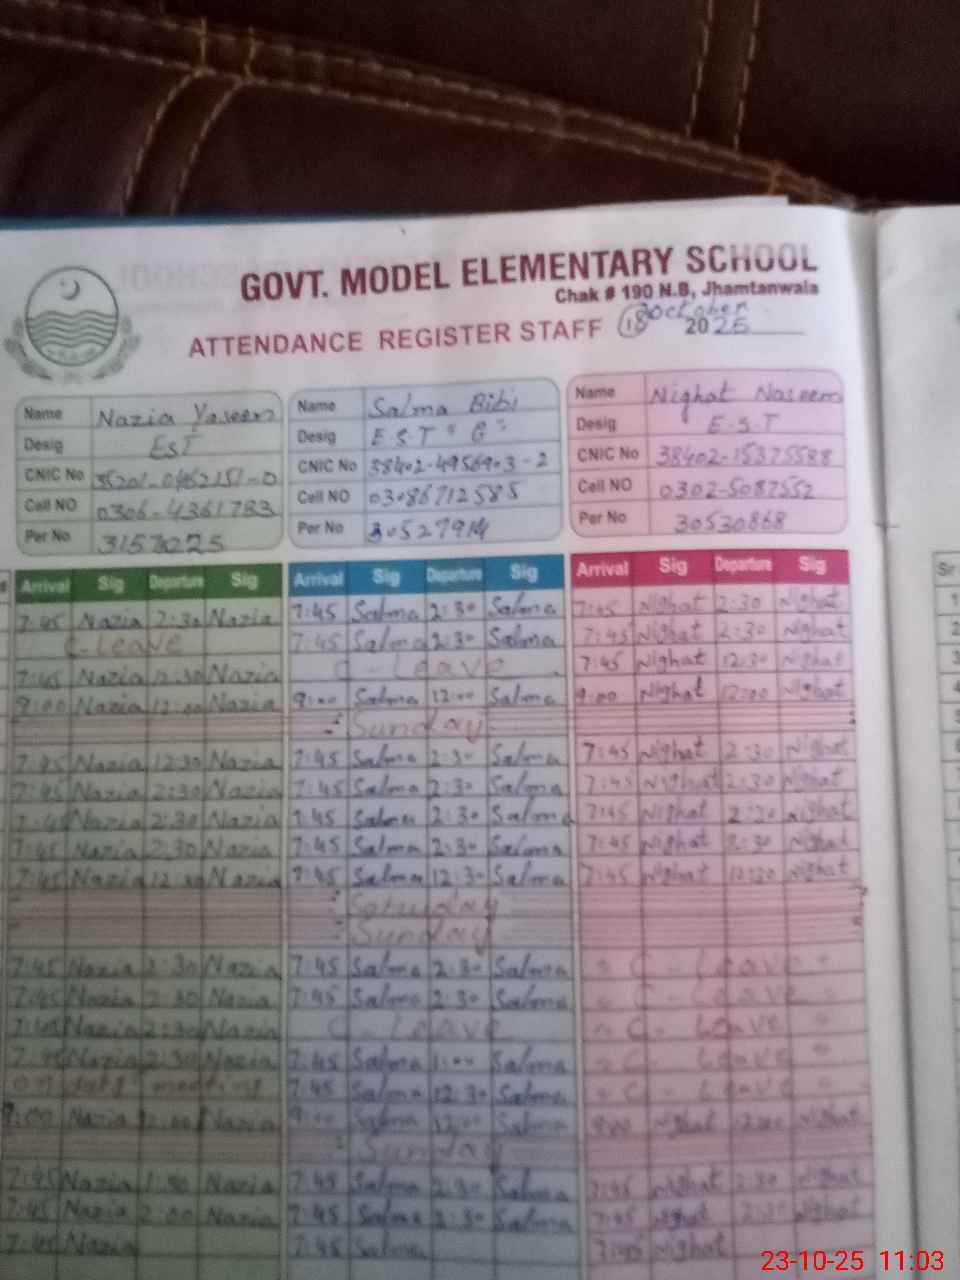 GOVT. MODEL ELEMENTARY SCHOOL
Chak # 190 N.B, Jhamtanwala
ATTENDANCE REGISTER STAFF 18 October 2025
Name Nazia Yaseen Name Salma Bibi Name Nighat Naseem
Desig EST Desig E.S.T "G" Desig E.S.T
CNIC No CNIC No 38402-4956903-2 CNIC No 38402-15375588
Cell NO 0306-4361783 Cell NO 03086712585 Cell NO 0302-5087552
Per No 3153025 Per No 30527914 Per No 30530868
Arrival Sig Departure Sig Arrival Sig Departure Sig Arrival Sig Departure Sig Sr
7:45 Nazia 2:30 Nazia 7:45 Salma 2:30 Salma 7:45 Nighat 2:30 Nighat 1
C-Leave 7:45 Salma 2:30 Salma 7:45 Nighat 2:30 Nighat 2
7:45 Nazia 12:30 Nazia C-Leave 7:45 Nighat 12:30 Nighat 3
9:00 Nazia 12:00 Nazia 9:00 Salma 12:00 Salma 9:00 Nighat 12:00 Nighat 4
Sunday 5
7:45 Nazia 12:30 Nazia 7:45 Salma 2:30 Salma 7:45 Nighat 2:30 Nighat
7:45 Nazia 2:30 Nazia 7:45 Salma 2:30 Salma 7:45 Nighat 2:30 Nighat
7:45 Nazia 2:30 Nazia 7:45 Salma 2:30 Salma 7:45 Nighat 2:30 Nighat
7:45 Nazia 2:30 Nazia 7:45 Salma 2:30 Salma 7:45 Nighat 2:30 Nighat
7:45 Nazia 12:30 Nazia 7:45 Salma 12:30 Salma 7:45 Nighat 12:30 Nighat
Saturday
Sunday
7:45 Nazia 2:30 Nazia 7:45 Salma 2:30 Salma C-Leave
7:45 Nazia 2:30 Nazia 7:45 Salma 2:30 Salma C-Leave
7:45 Nazia 2:30 Nazia C-Leave C-Leave
7:45 Nazia 2:30 Nazia 7:45 Salma 1:00 Salma C-Leave
on duty meeting 7:45 Salma 12:30 Salma C-Leave
9:00 Nazia Nazia 9:00 Salma 12:00 Salma 9:00 Nighat 12:00 Nighat
Sunday
7:45 Nazia 1:30 Nazia 7:45 Salma 2:30 Salma 7:45 Nighat 2:30 Nighat
7:45 Nazia 2:00 Nazia 7:45 Salma 2:30 Salma 7:45 Nighat 2:30 Nighat
7:45 Nazia 7:45 Salma 7:45 Nighat
23-10-25 11:03